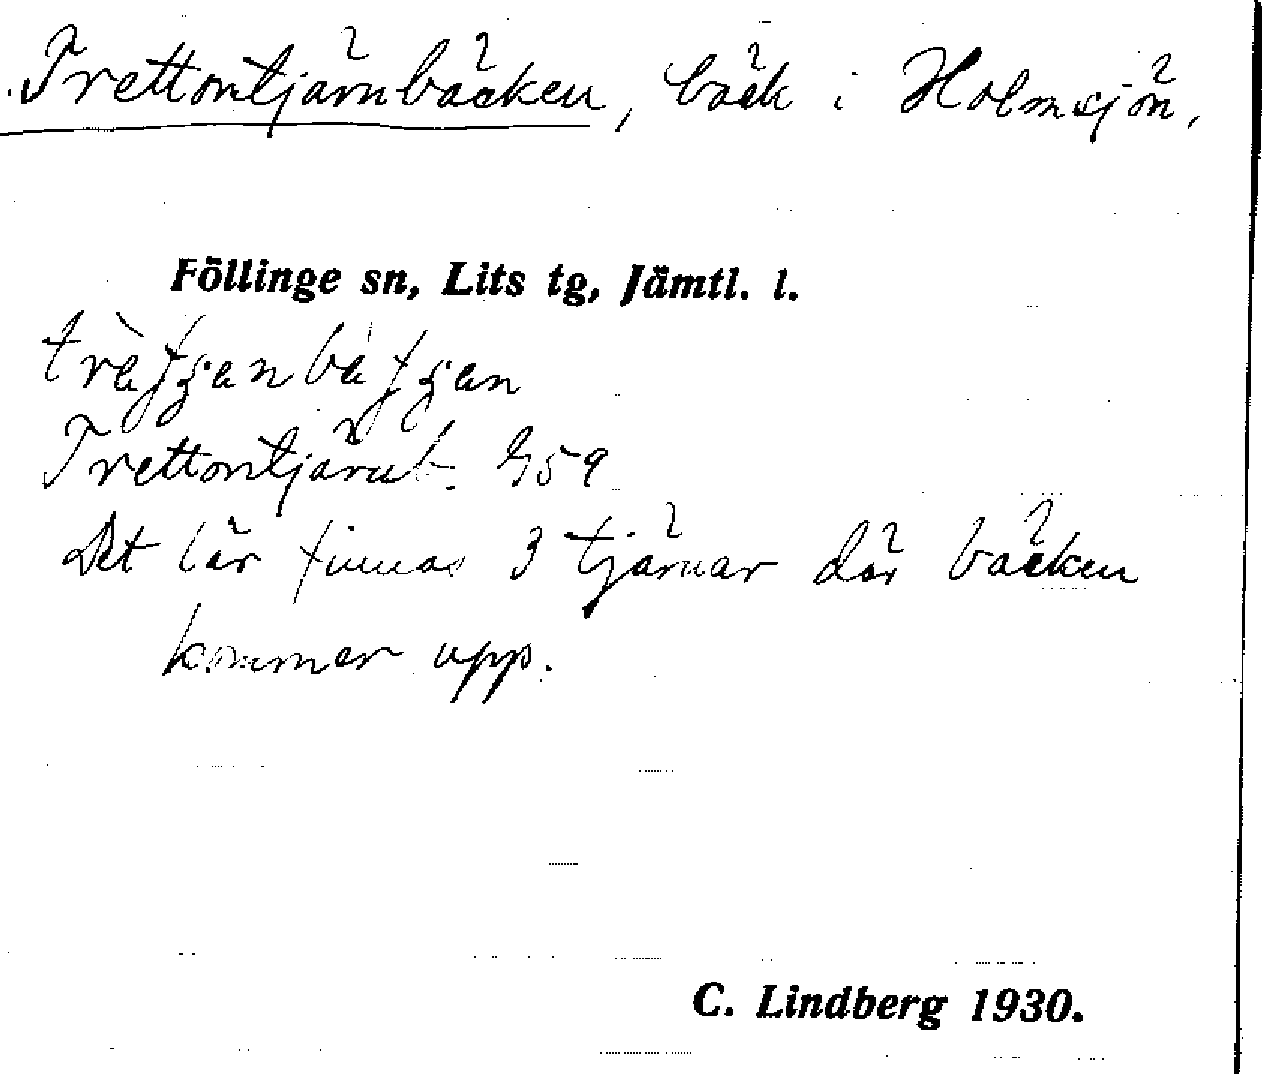 Trettontjärnbäcken, bäck i Holmsjön,
Föllinge sn, Lits tg, Jämtl. l.
Trettontjärnb. G59
Det lär finnas 3 tjärnar där bäcken
kommer upp.
C. Lindberg 1930.